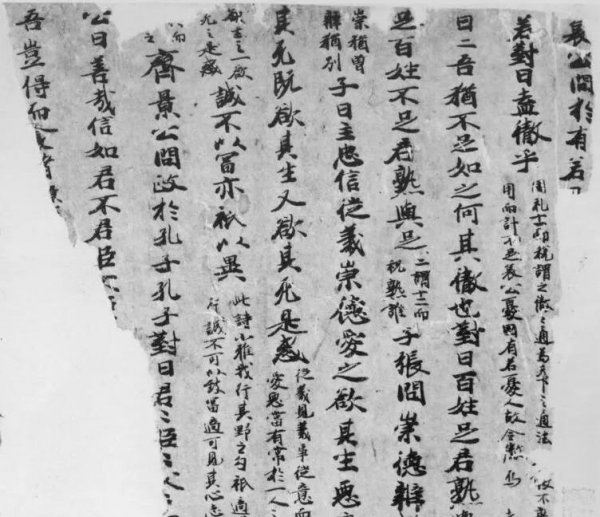 哀公問於有若曰
若對曰盍徹乎
周礼十一而税謂之徹々通為天下之通法
用而計不足哀公憂國有若憂人故令徹焉
曰二吾猶不足如之何其徹也對曰百姓足君熟
足百姓不足君熟與足
二謂十二而
税熟誰
子張問崇德辨
崇猶曽
辨猶別
子曰主忠信徙義崇德愛之欲其生惡
其死既欲其生又欲其死是惑
徙義見義事徙意而
愛惡當有常於一人
欲生之一欲
死之是惑
誠不以富亦祇以異
此詩小雅我行其野之句祇適
行誠不可以致富適可見其心志
以而
之
齊景公問政於孔子孔子對曰君々臣々父々
公曰善哉信如君不君臣
吾豈得而食諸